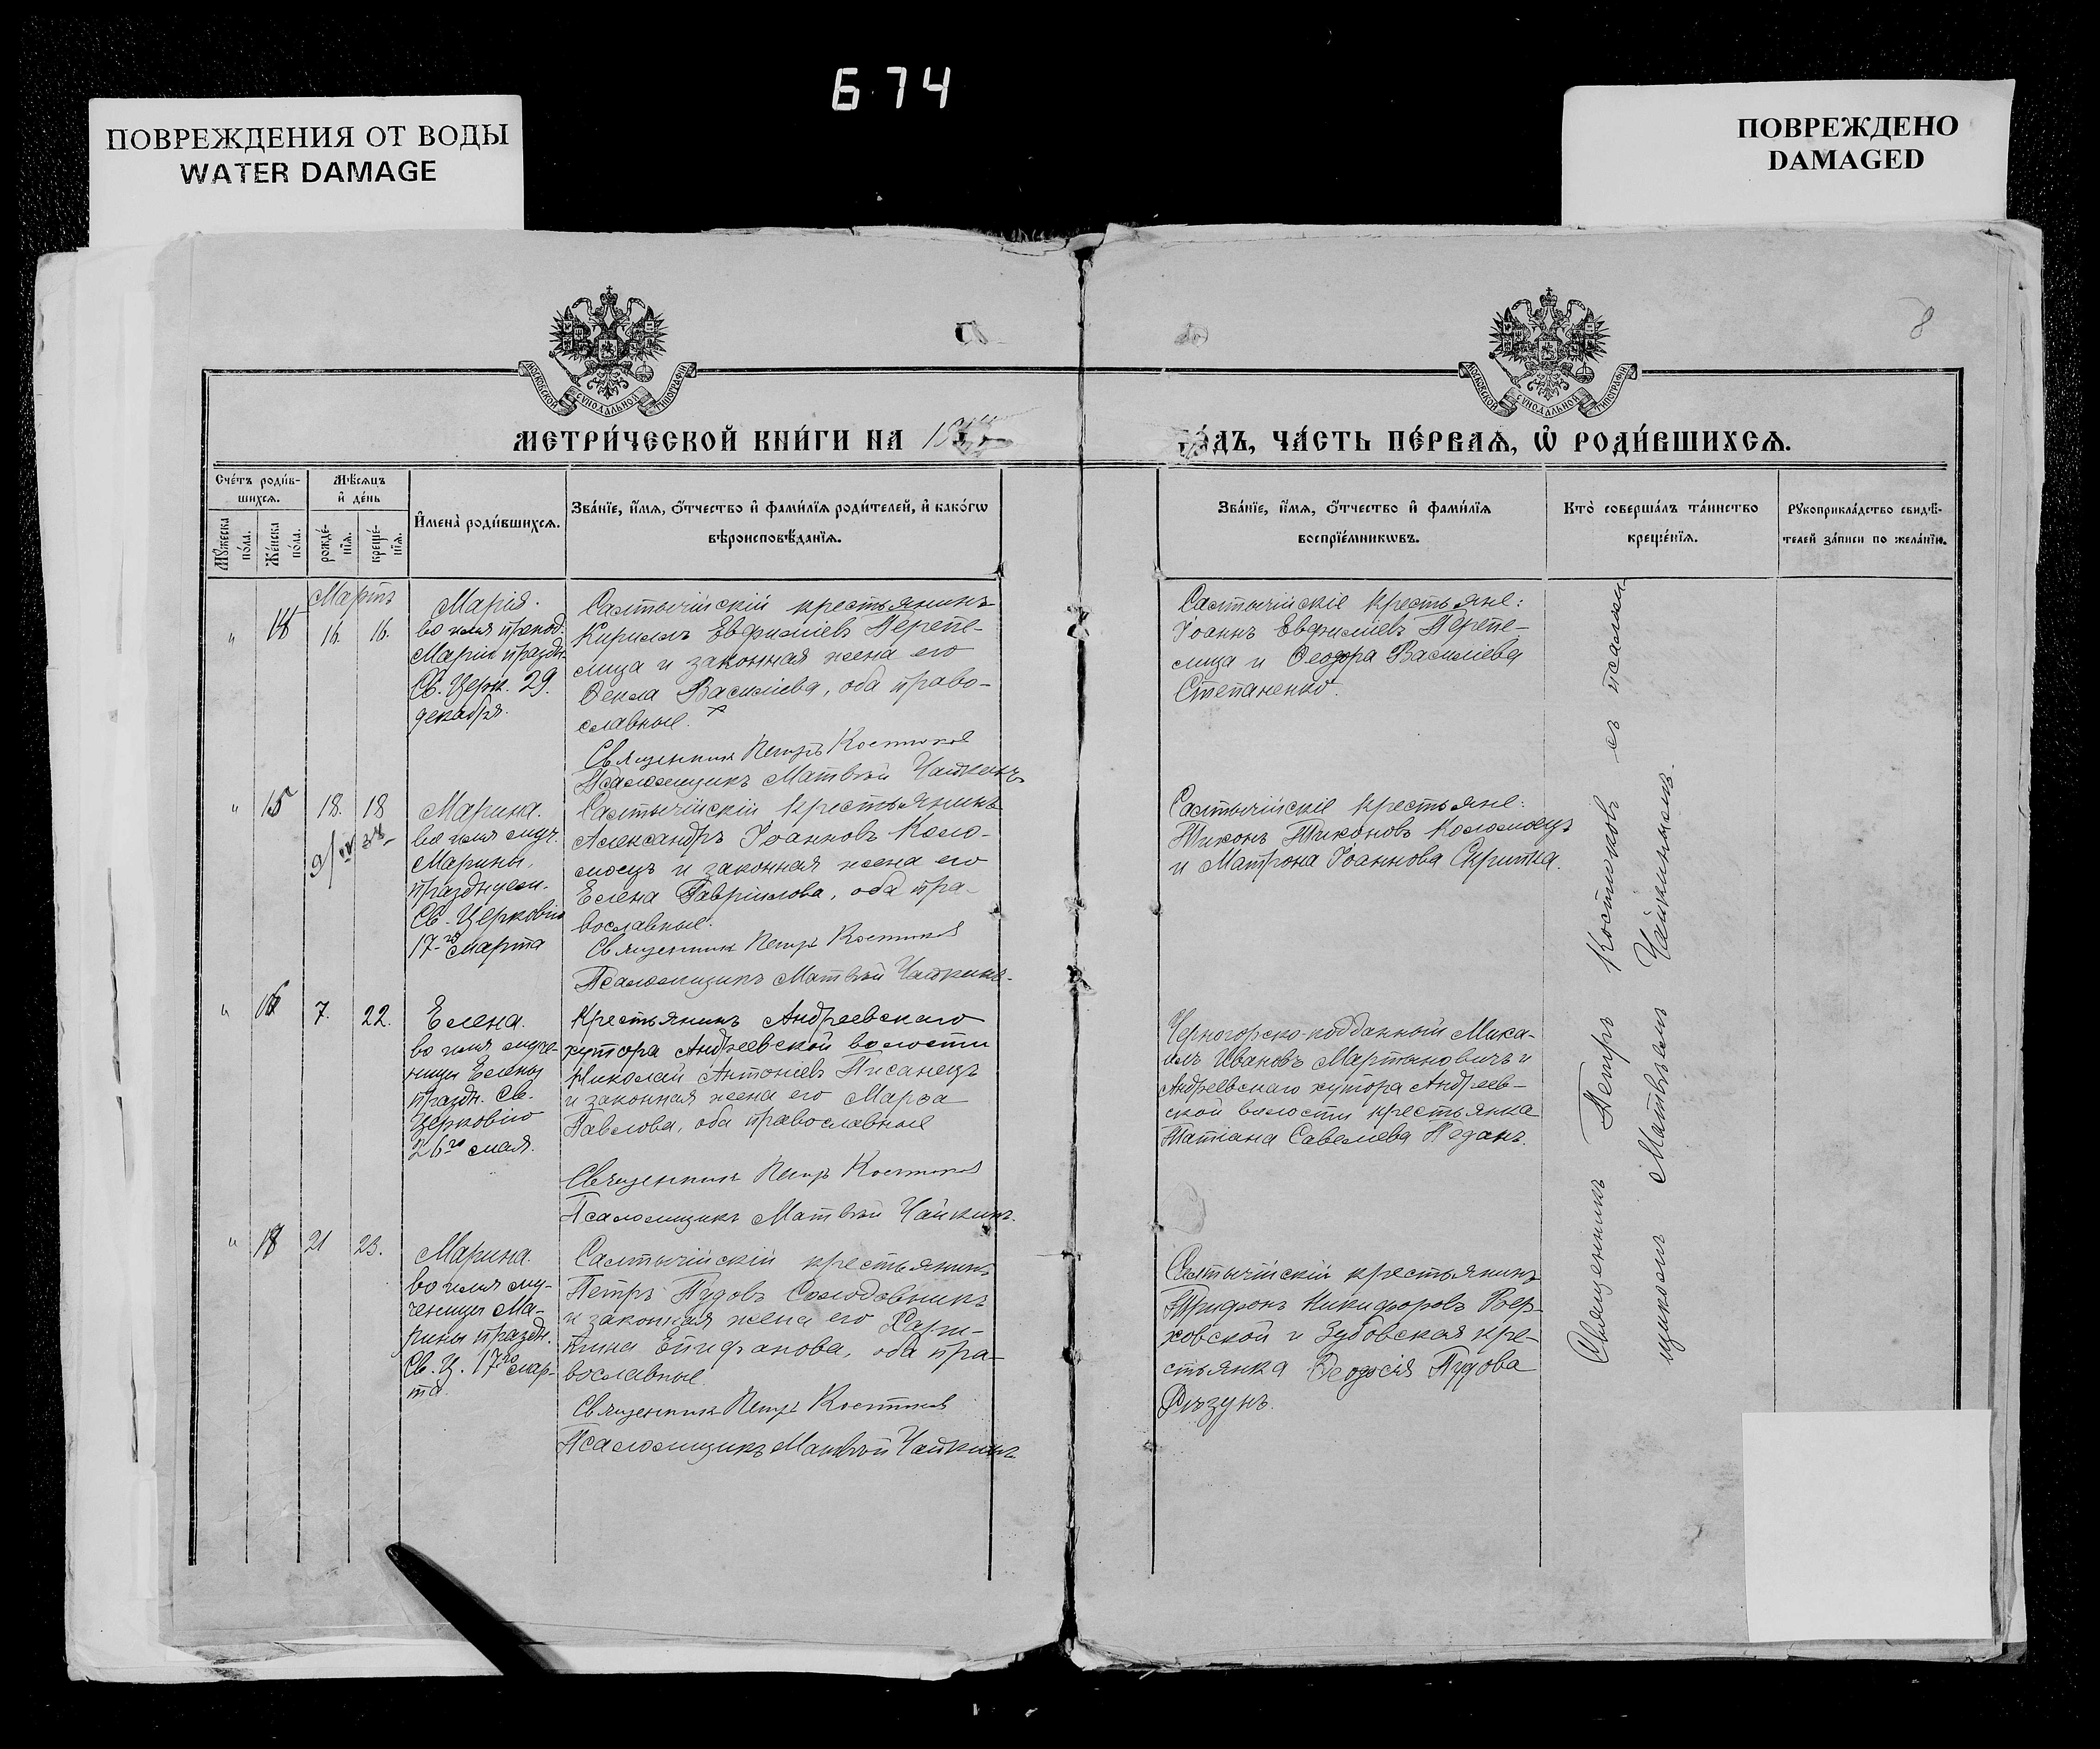 674
ПОВРЕЖДЕНИЯ ОТ ВОДЫ
WATER DAMAGE
ПОВРЕЖДЕНО
DAMAGED
8
МОСКОВСКОЙ СѴНОДАЛЬНОЙ ТИПОГРАФІИ
МОСКОВСКОЙ СѴНОДАЛЬНОЙ ТИПОГРАФІИ
МЕТРИ́ЧЕСКОЙ КНИ́ГИ НА
ГО́ДЪ, ЧА́СТЬ ПЕ́РВАѦ, Ѽ РОДИ́ВШИХСѦ.
Сче́тъ роди́в-
шихсѧ.
Мꙋ́жеска
по́ла.
Же́нска
по́ла.
Мѣ́сѧцъ
и҆ де́нь
рожде́-
нїѧ.
креще́-
нїѧ.
И҆мена̀ роди́вшихсѧ.
Зва́нїе, и҆́мѧ, ѻ҆́тчество и҆ фами́лїѧ роди́телей, и҆ како́гѡ
вѣроисповѣ́данїѧ.
Зва́нїе, и҆́мѧ, ѻ҆́тчество и҆ фами́лїѧ
воспрїе́мникѡвъ.
Кто̀ соверша́лъ та́инство
креще́нїѧ.
Рꙋкоприкла́дство свидѣ́-
телей за́писи по жела́нїю.
Мартъ
" 16. 16.
Марія.
во имя препод.
Маріи праздн.
Св. Церк. 29.
декабря.
Салтычійскій крестьянинъ
Кириллъ Евфиміевъ Перепе-
лица и законная жена его
Ѳекла Васильева, оба право-
славные.
Священникъ Петръ Костиковъ
Псаломщикъ Матвѣй Чайкинъ
Салтычійскіе крестьяне:
Іоаннъ Евфиміевъ Перепе-
лица и Ѳеодора Васильева
Степаненко.
" 15 18. 18
Марина.
во имя муч.
Марины,
празднуем.
Св. Церковію
17-го марта
Салтычійскій крестьянинъ
Александръ Іоанновъ Коло-
моецъ и законная жена его
Елена Гавріилова, оба пра-
вославные.
Священникъ Петръ Костиковъ
Псаломщикъ Матвѣй Чайкинъ
Салтычійскіе крестьяне:
Тихонъ Тихоновъ Коломоецъ
и Матрона Іоаннова Скрипка.
" 16 7. 22.
Елена.
во имя муче-
ницы Елены
праздн. Св.
Церковію
26го мая.
Крестьянинъ Андреевскаго
хутора Андреевской волости
Николай Антоніевъ Писанецъ
и законная жена его Марѳа
Павлова, оба православные
Священникъ Петръ Костиковъ
Псаломщикъ Матвѣй Чайкинъ.
Черногорско-подданный Миха-
илъ Ивановъ Мартыновичъ и
Андреевскаго хутора Андреев-
ской волости крестьянка
Татіана Савельева Педанъ.
" 21 23.
Марина.
во имя му-
ченицы Ма-
рины праздн.
Св. Ц. 17го мар-
та.
Салтычійскій крестьянинъ
Петръ Пудовъ Солодовникъ
и законная жена его Хари-
тина Епифанова, оба пра-
вославные
Священникъ Петръ Костиковъ
Псаломщикъ Матвѣй Чайкинъ
Салтычійскій крестьянинъ
Трифонъ Никифоровъ Вер-
ховской и Зубовская кре-
стьянка Ѳеодосія Пудова
Рѣзунъ.
Священникъ Петръ Костиковъ съ псалом-
щикомъ Матвѣемъ Чайкинымъ.